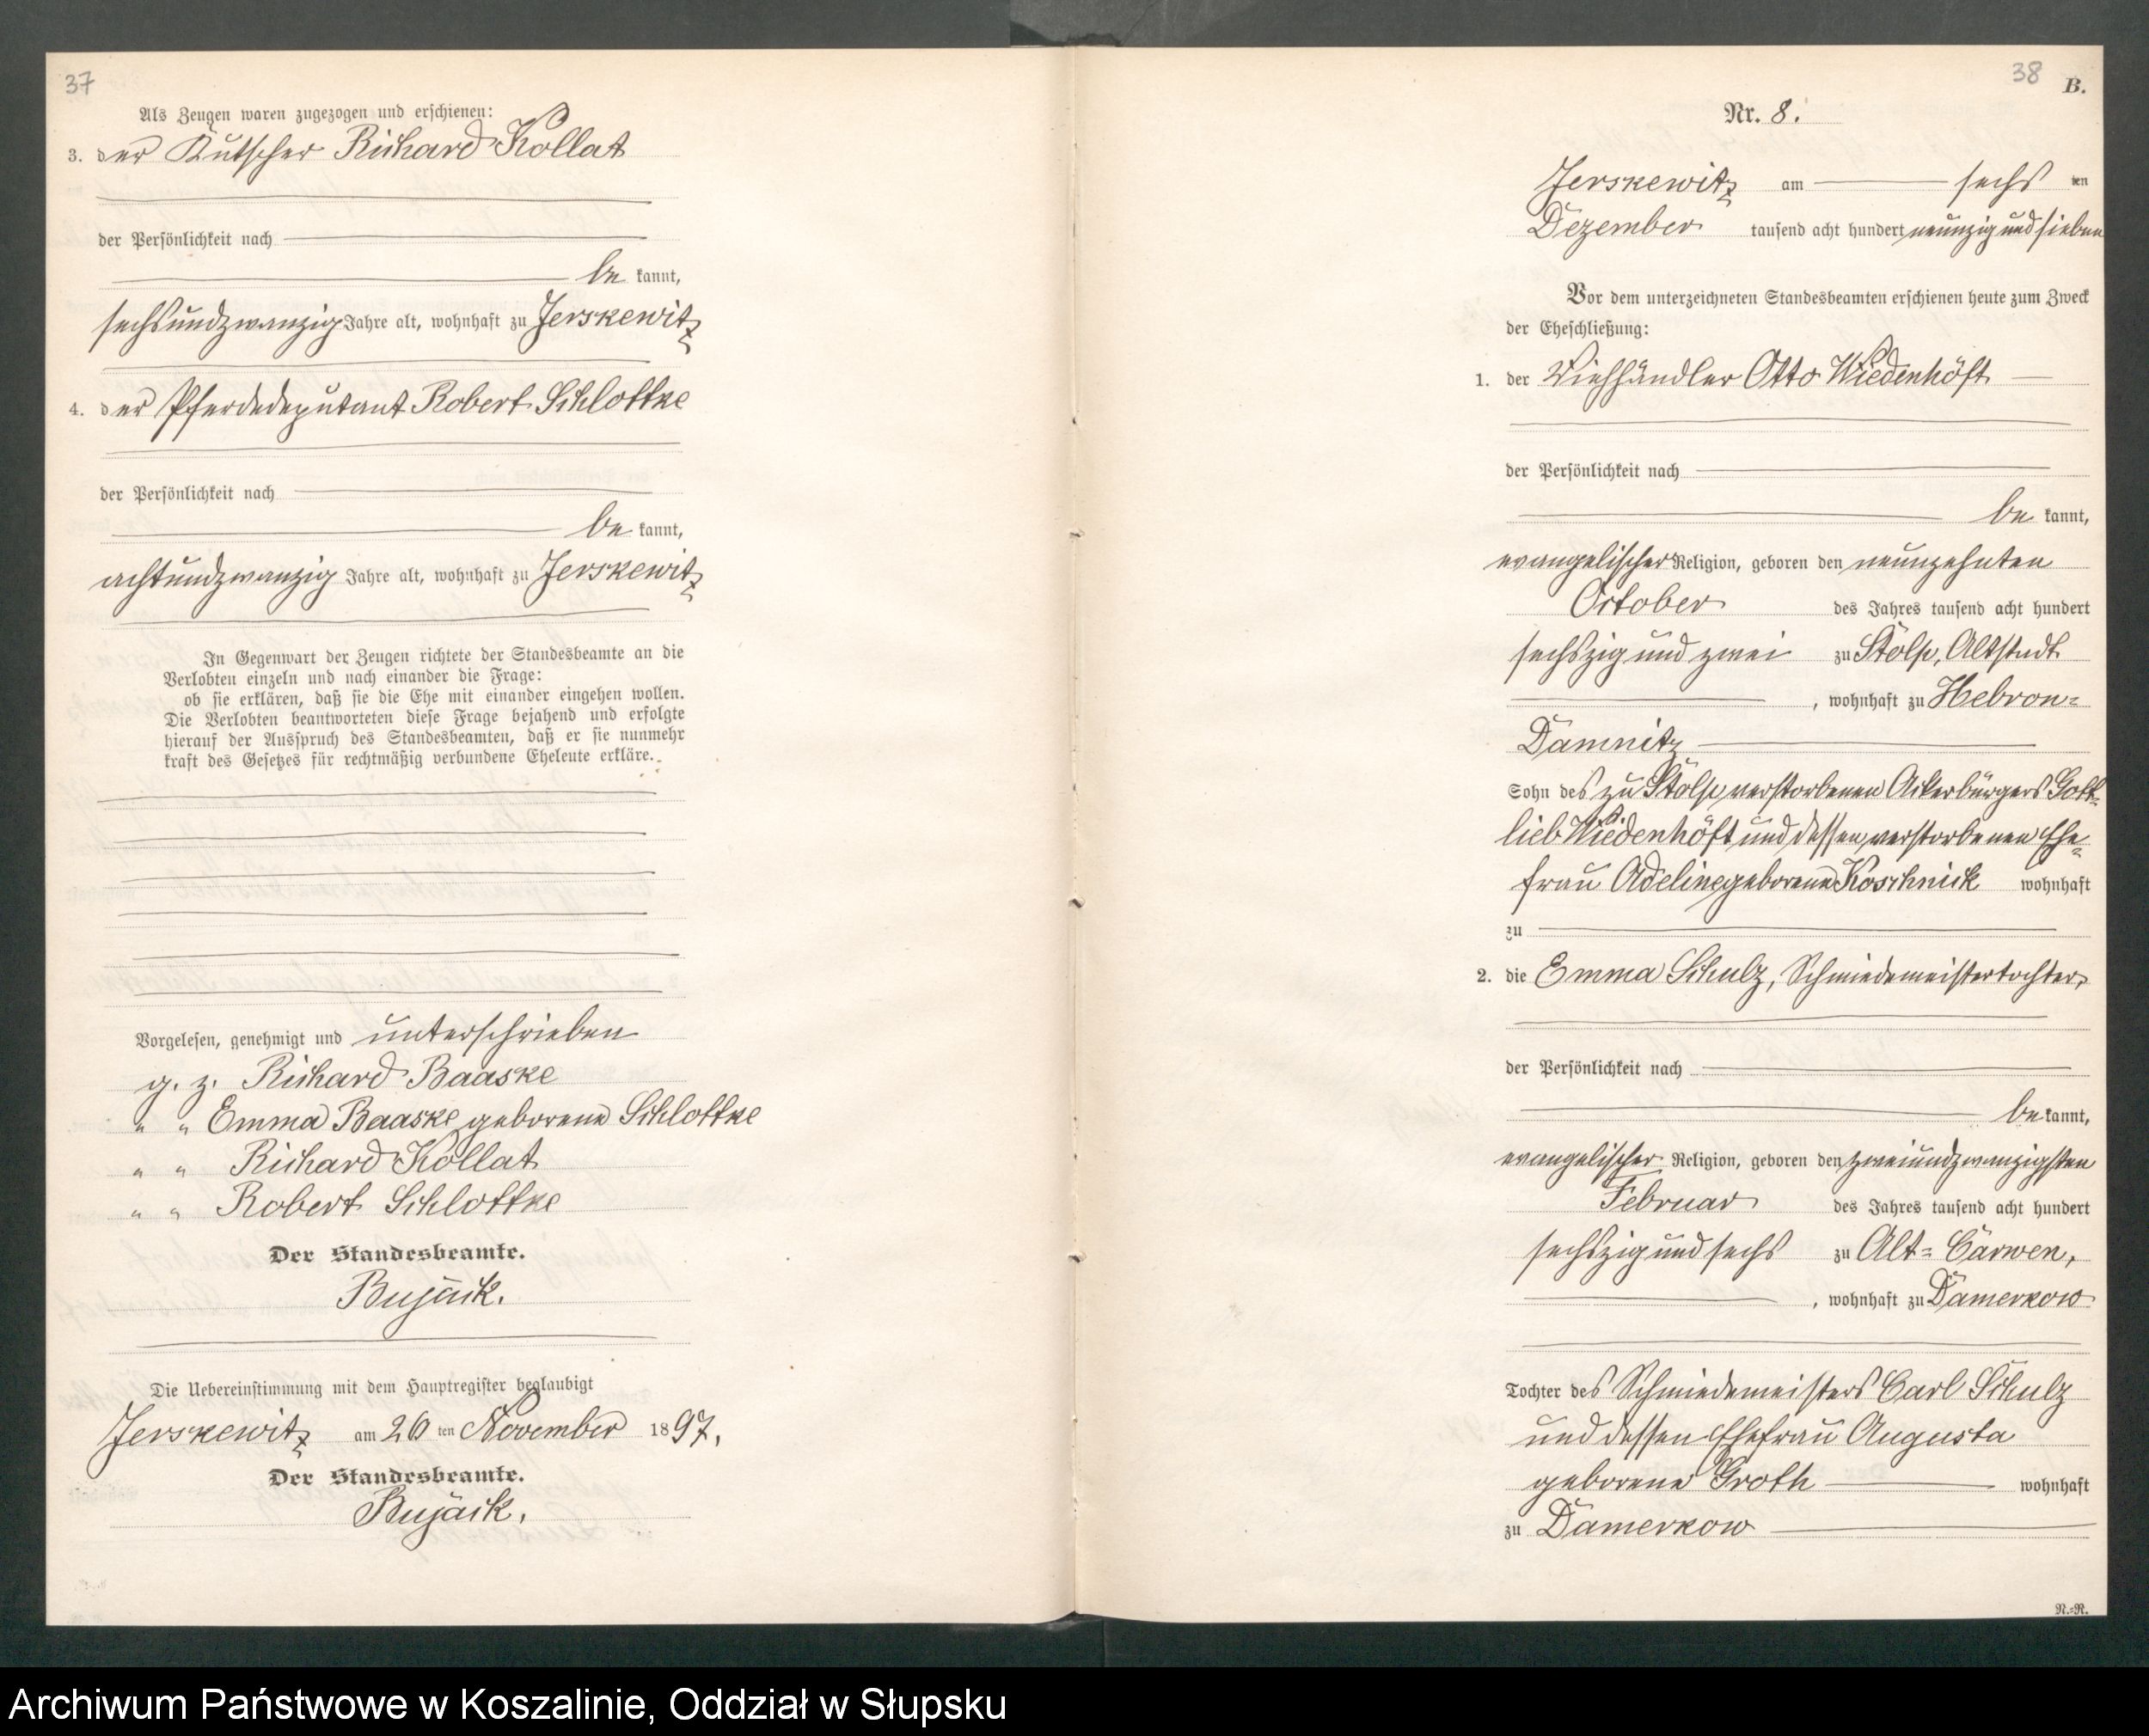 37
Als Zeugen waren zugezogen und erschienen:
3. der Kutscher Richard Kollat
der Persönlichkeit nach
be kannt,
sechsundzwanzig Jahre alt, wohnhaft zu Jerskewitz
4. der Pferdedeputant Robert Schlottke
der Persönlichkeit nach
be kannt,
achtundzwanzig Jahre alt, wohnhaft zu Jerskewitz
In Gegenwart der Zeugen richtete der Standesbeamte an die
Verlobten einzeln und nach einander die Frage:
ob sie erklären, daß sie die Ehe mit einander eingehen wollen.
Die Verlobten beantworteten diese Frage bejahend und erfolgte
hierauf der Ausspruch des Standesbeamten, daß er sie nunmehr
kraft des Gesetzes für rechtmäßig verbundene Eheleute erkläre.
Vorgelesen, genehmigt und unterschrieben
g. z. Richard Baaske
" " Emma Baaske geborene Schlottke
" " Richard Kollat
" " Robert Schlottke
Der Standesbeamte.
Bujack.
Die Uebereinstimmung mit dem Hauptregister beglaubigt
Jerskewitz am 26 ten November 1897,
Der Standesbeamte.
Bujack.
38
B.
Nr. 8.
Jerskewitz am sechs ten
Dezember tausend acht hundert neunzig und sieben
Vor dem unterzeichneten Standesbeamten erschienen heute zum Zweck
der Eheschließung:
1. der Viehhändler Otto Wiedenhöft
der Persönlichkeit nach
be kannt,
evangelischer Religion, geboren den neunzehnten
October des Jahres tausend acht hundert
sechszig und zwei zu Stolp, Altstadt
, wohnhaft zu Hebron=
Damnitz
Sohn des zu Stolp verstorbenen Ackerbürgers Gott=
lieb Wiedenhöft und dessen verstorbenen Ehe=
frau Adeline geborene Koschnick wohnhaft
zu
2. die Emma Schulz, Schmiedemeistertochter,
der Persönlichkeit nach
be kannt,
evangelischer Religion, geboren den zweiundzwanzigsten
Februar des Jahres tausend acht hundert
sechszig und sechs zu Alt=Carwen,
, wohnhaft zu Damerkow
Tochter des Schmiedemeisters Carl Schulz
und dessen Ehefrau Augusta
geborene Groth wohnhaft
zu Damerkow
N.=R.
Archiwum Państwowe w Koszalinie, Oddział w Słupsku